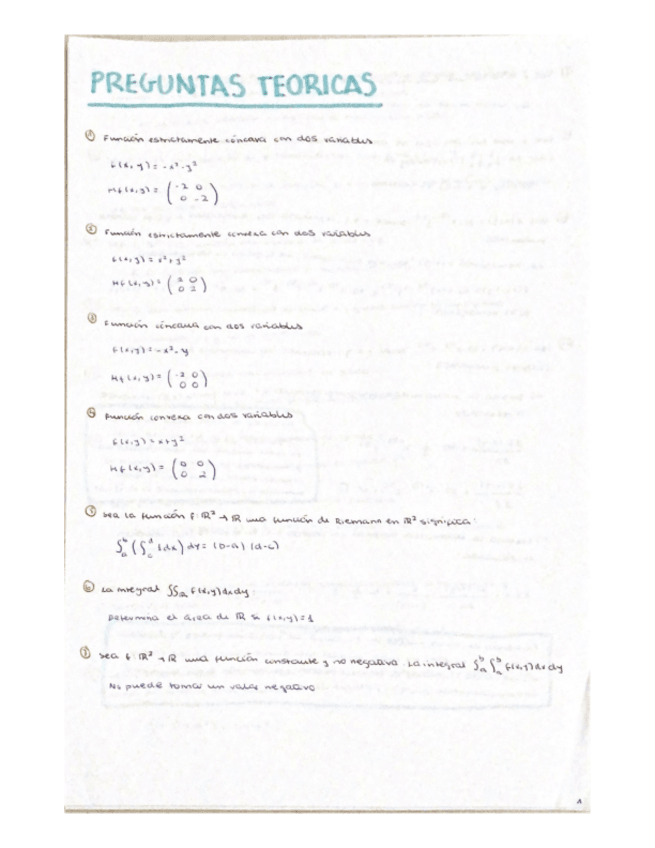 PREGUNTAS TEORICAS
① Función estrictamente cóncava con dos variables
f(x, y) = -x²-y²
Hf(x,y) = (-2 0
0 -2)
② Función estrictamente convexa con dos variables
f(x,y) = x²+y²
Hf(x,y) = (2 0
0 2)
③ Función cóncava con dos variables
f(x,y) = -x²-y
Hf(x,y) = (-2 0
0 0)
④ Función convexa con dos variables
f(x,y) = x+y²
Hf(x,y) = (0 0
0 2)
⑤ Sea la función f: ℝ² → ℝ una función de Riemann en ℝ² significa:
∫ₐᵇ (∫꜀ᵈ 1dx) dy = (b-a) (d-c)
⑥ La integral ∬ℝ f(x,y)dxdy:
Determina el área de ℝ si f(x,y)=1
⑦ Sea f: ℝ² → ℝ una función constante y no negativa. La integral ∫ₐᵇ ∫ₐᵇ f(x,y)dxdy
No puede tomar un valor negativo
1